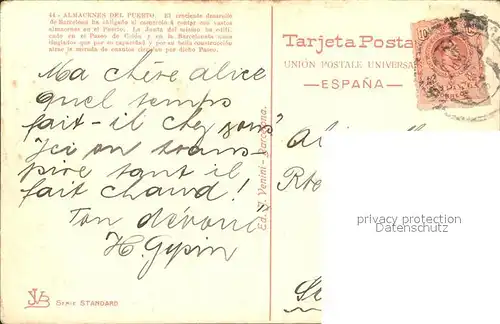 44 - ALMACENES DEL PUERTO. El creciente desarrollo
de Barcelona ha obligado al comercio á contar con vastos
almacenes en el Puerto. La Junta del mismo ha edifi-
cado en el Paseo de Colón y en la Barceloneta unos
tinglados que por su capacidad y por su bella construcción
sirve je morada de cuantos circulan por dicho Paseo.
Tarjeta Posta
UNIÓN POSTALE UNIVERSA
—ESPAÑA—
Ma chère alice
quel temps
fait-il chez vous
Ici on trans-
pire tant il
fait chaud!
Ton dévoué
H. Gypin
Ed. S. Venini-Barcelona.
Rte
privacy protection
JVB
Serie STANDARD